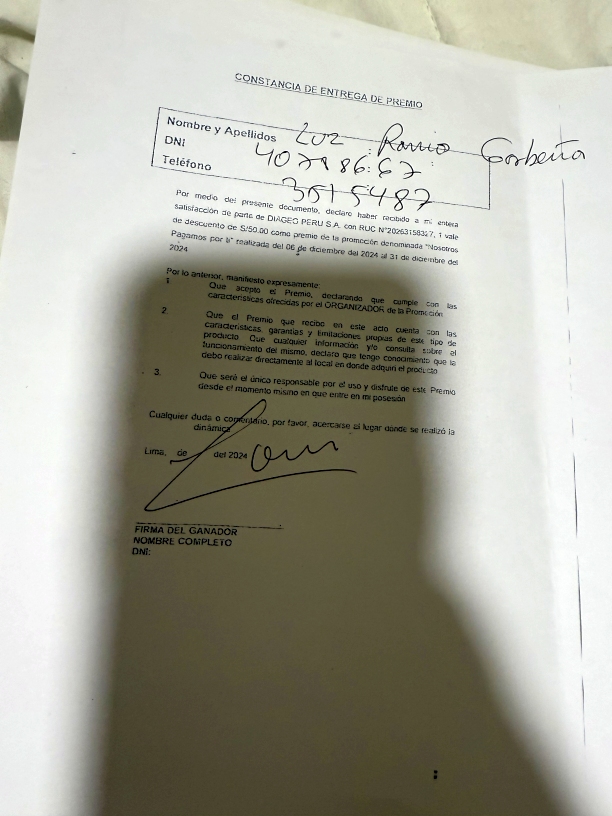 CONSTANCIA DE ENTREGA DE PREMIO
Nombre y Apellidos Luz
DNI 40798667
Teléfono 3515487
Por medio del presente documento, declaro haber recibido a mi entera
satisfacción de parte de DIAGEO PERU S.A. con RUC N°20263158327, 1 vale
de descuento de S/50.00 como premio de la promoción denominada "Nosotros
Pagamos por ti" realizada del 06 de diciembre del 2024 al 31 de diciembre del
2024
Por lo anterior, manifiesto expresamente:
1. Que acepto el Premio, declarando que cumple con las
características ofrecidas por el ORGANIZADOR de la Promoción
2. Que el Premio que recibo en este acto cuenta con las
características, garantías y limitaciones propias de este tipo de
producto. Que cualquier información y/o consulta sobre el
funcionamiento del mismo, declaro que tengo conocimiento que la
debo realizar directamente al local en donde adquirí el producto
3. Que seré el único responsable por el uso y disfrute de este Premio
desde el momento mismo en que entre en mi posesión
Cualquier duda o comentario, por favor, acercarse al lugar donde se realizó la
dinámica
Lima, de del 2024
FIRMA DEL GANADOR
NOMBRE COMPLETO
DNI: